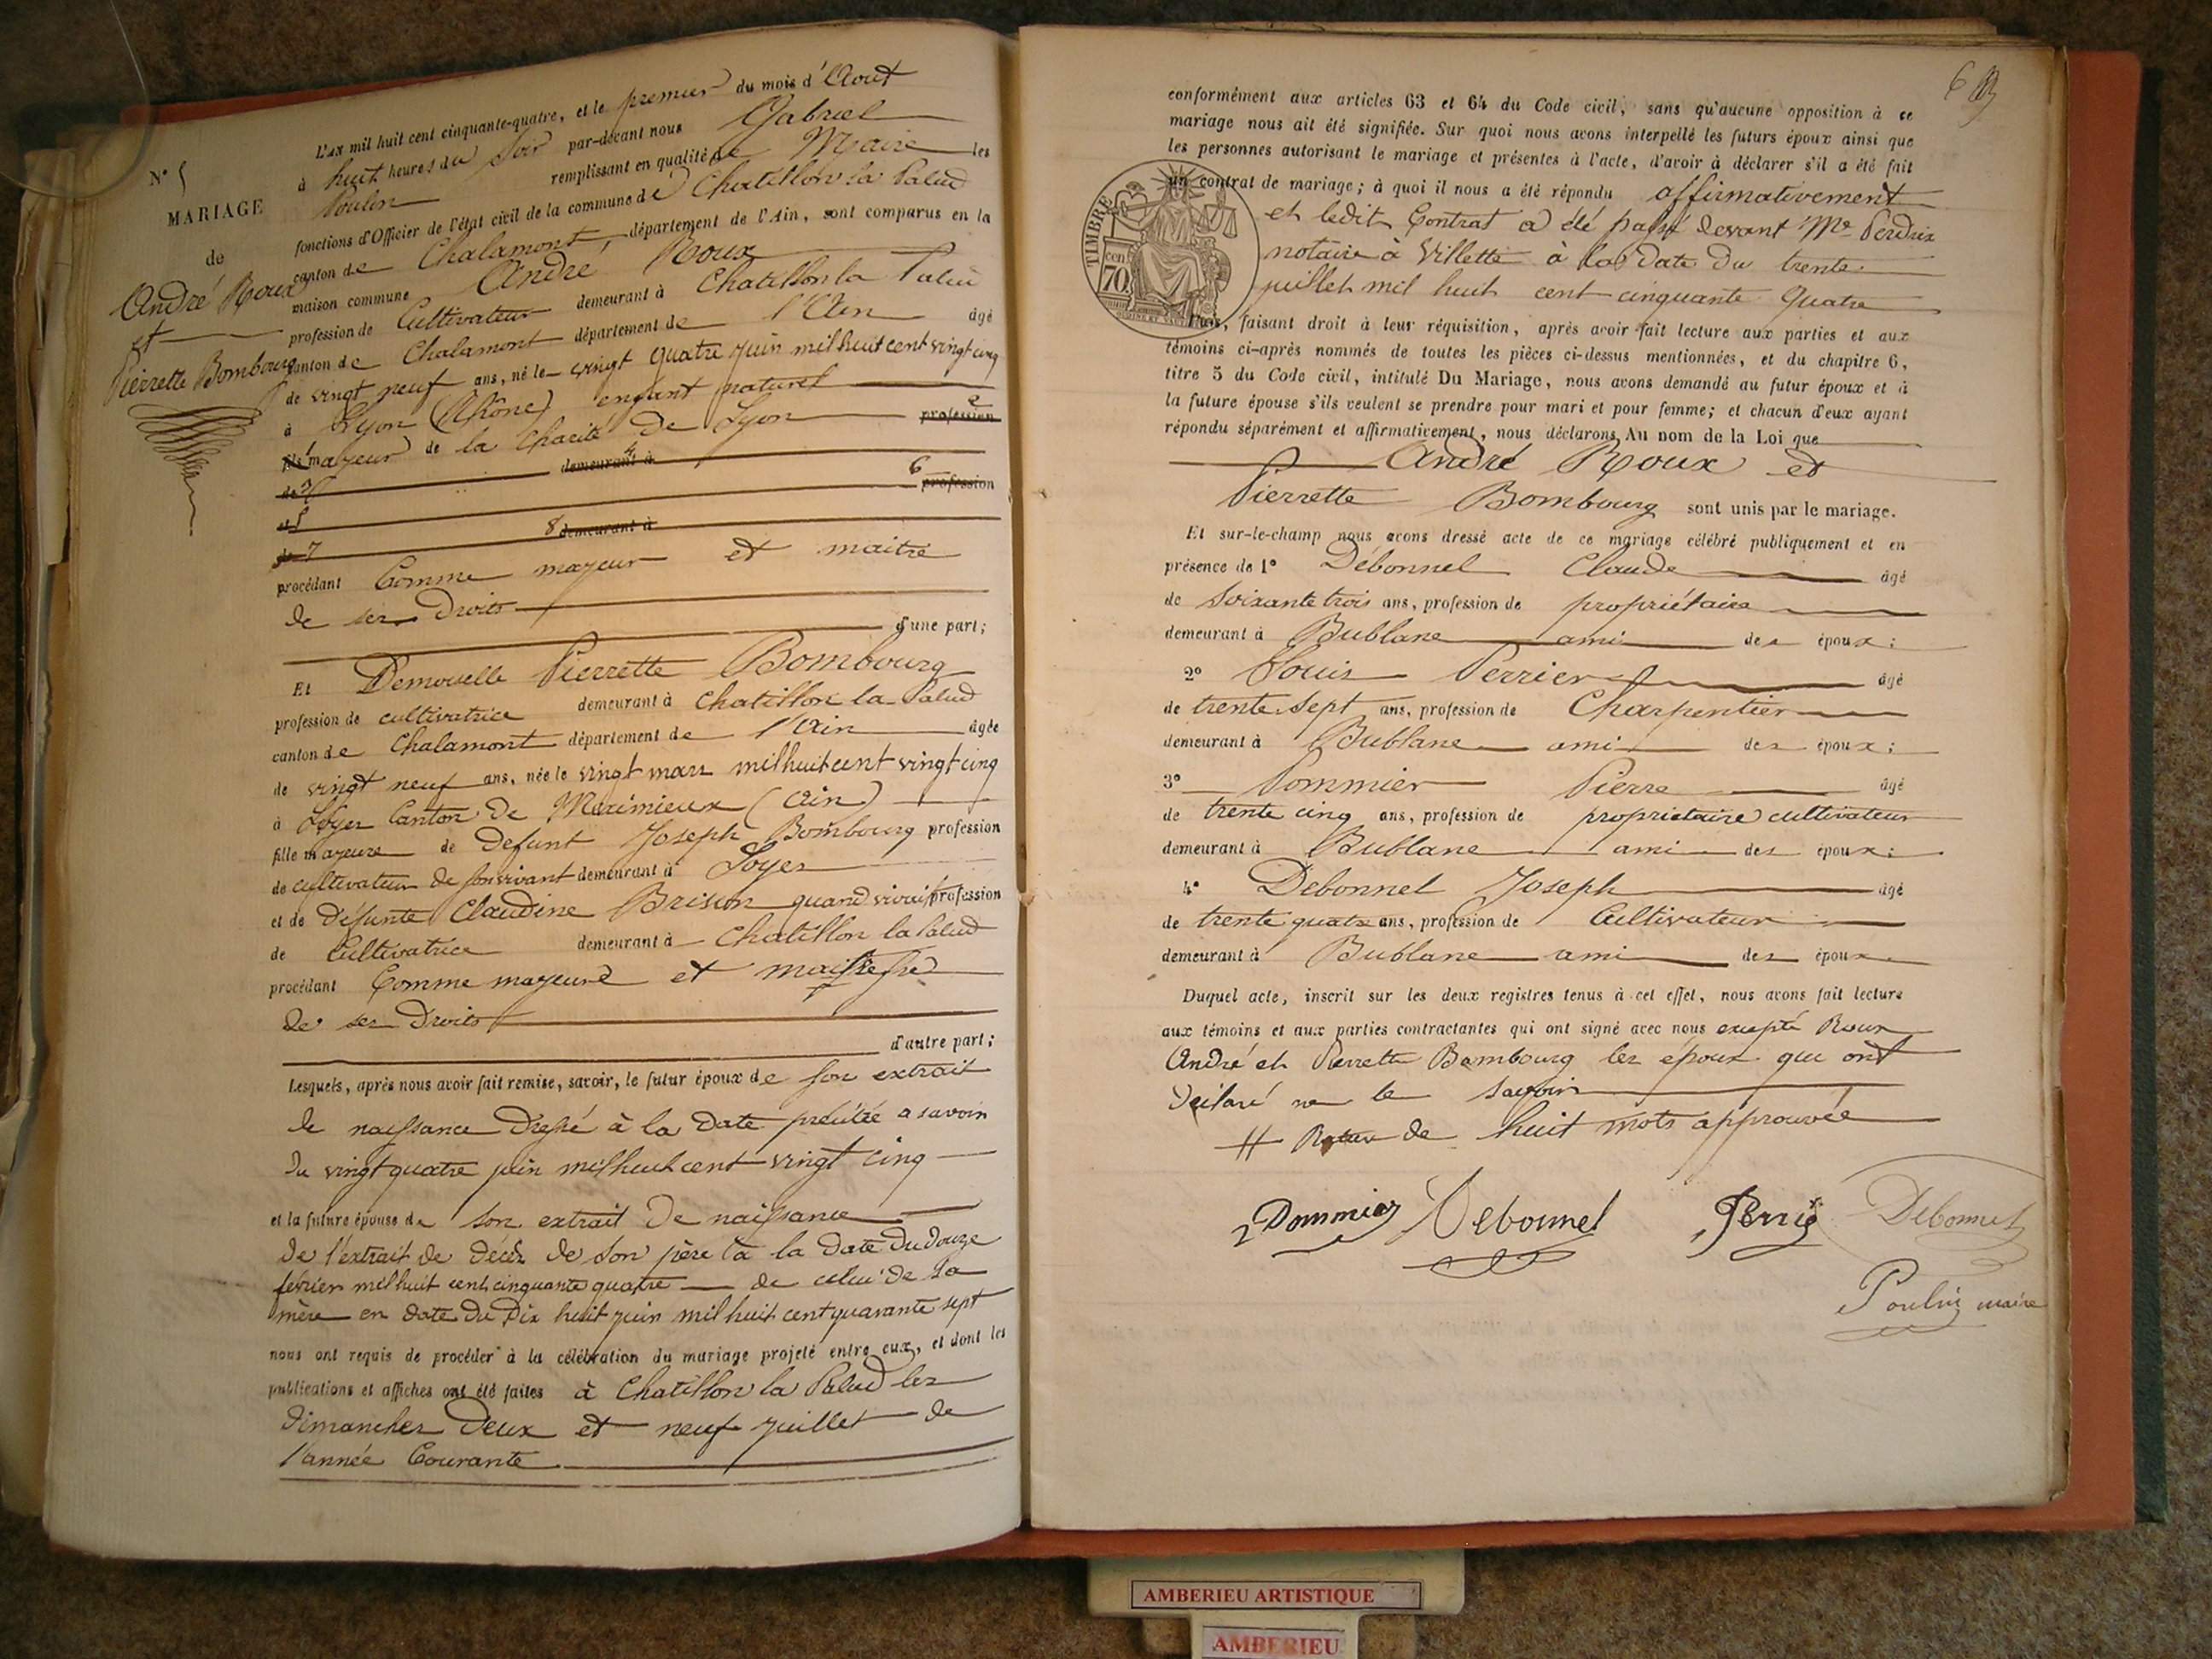 N° 5
MARIAGE
de
André Roux
et
Pierrette Bombourg
L'AN mil huit cent cinquante-quatre, et le premier du mois d'Aout
à huit heures du soir par-devant nous Gabriel
Poulin remplissant en qualité de Maire les
fonctions d'Officier de l'état civil de la commune de Chatillon la Palud
canton de Chalamont, département de l'Ain, sont comparus en la
maison commune André Roux
profession de Cultivateur demeurant à Chatillon la Palud
canton de Chalamont département de l'Ain âgé
de vingt neuf ans, né le vingt quatre juin mil huit cent vingt cinq
à Lyon (Rhône) enfant naturel
fils mayeur de la Charité de Lyon profession
de demeurant à
et profession
de 7 8 demeurant à
procédant Comme mayeur et maitre
de ses Droits
d'une part;
Et Demoiselle Pierrette Bombourg
profession de cultivatrice demeurant à Chatillon la Palud
canton de Chalamont département de l'Ain âgée
de vingt neuf ans, née le vingt mars mil huit cent vingt cinq
à Loyes Canton de Meximieux (Ain)
fille mayeure de Defunt Joseph Bombourg profession
de cultivateur de son vivant demeurant à Loyes
et de Défunte Claudine Brison quand vivait profession
de Cultivatrice demeurant à Chatillon la Palud
procédant Comme mayeure et maitresse
de ses Droits
d'autre part;
Lesquels, après nous avoir fait remise, savoir, le futur époux de son extrait
de naissance Dressé à la Date précitée a savoir
du vingt quatre juin mil huit cent vingt cinq
et la future épouse de son extrait De naissance
de l'extrait de décès de son père à la Date du douze
fevrier mil huit cent cinquante quatre de celui de sa
mère en date du Dix huit juin mil huit cent quarante sept
nous ont requis de procéder à la célébration du mariage projeté entre eux, et dont les
publications et affiches ont été faites à Chatillon la Palud les
dimanches Deux et neuf juillet de
l'année Courante
6
conformément aux articles 63 et 64 du Code civil, sans qu'aucune opposition à ce
mariage nous ait été signifiée. Sur quoi nous avons interpellé les futurs époux ainsi que
les personnes autorisant le mariage et présentes à l'acte, d'avoir à déclarer s'il a été fait
un contrat de mariage; à quoi il nous a été répondu affirmativement
et ledit Contrat a été passé devant Me Perdrix
notaire à Villette à la Date du trente
juillet mil huit cent cinquante Quatre
TIMBRE
cen
70
Puis, faisant droit à leur réquisition, après avoir fait lecture aux parties et aux
témoins ci-après nommés de toutes les pièces ci-dessus mentionnées, et du chapitre 6,
titre 5 du Code civil, intitulé Du Mariage, nous avons demandé au futur époux et à
la future épouse s'ils veulent se prendre pour mari et pour femme; et chacun d'eux ayant
répondu séparément et affirmativement, nous déclarons Au nom de la Loi que
André Roux et
Pierrette Bombourg sont unis par le mariage.
Et sur-le-champ nous avons dressé acte de ce mariage célébré publiquement et en
présence de 1° Débonnel Claude âgé
de soixante trois ans, profession de propriétaire
demeurant à Bublane ami des époux;
2° Louis Perrier âgé
de trente sept ans, profession de Charpentier
demeurant à Bublane ami des époux;
3° Pommier Pierre âgé
de trente cinq ans, profession de propriétaire cultivateur
demeurant à Bublane ami des époux;
4° Debonnel Joseph âgé
de trente quatre ans, profession de Cultivateur
demeurant à Bublane ami des époux
Duquel acte, inscrit sur les deux registres tenus à cet effet, nous avons fait lecture
aux témoins et aux parties contractantes qui ont signé avec nous excepté Roux
André et Pierrette Bombourg les époux qui ont
déclaré ne le savoir
de huit mots approuvée
Pommier Debonnel Perrie Debonnel
Poulin maire
AMBERIEU ARTISTIQUE
AMBERIEU